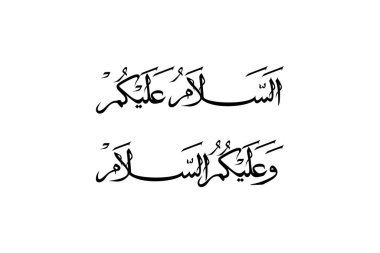 السَّلَامُ عَلَيْكُمْ
وَعَلَيْكُمُ السَّلَامْ